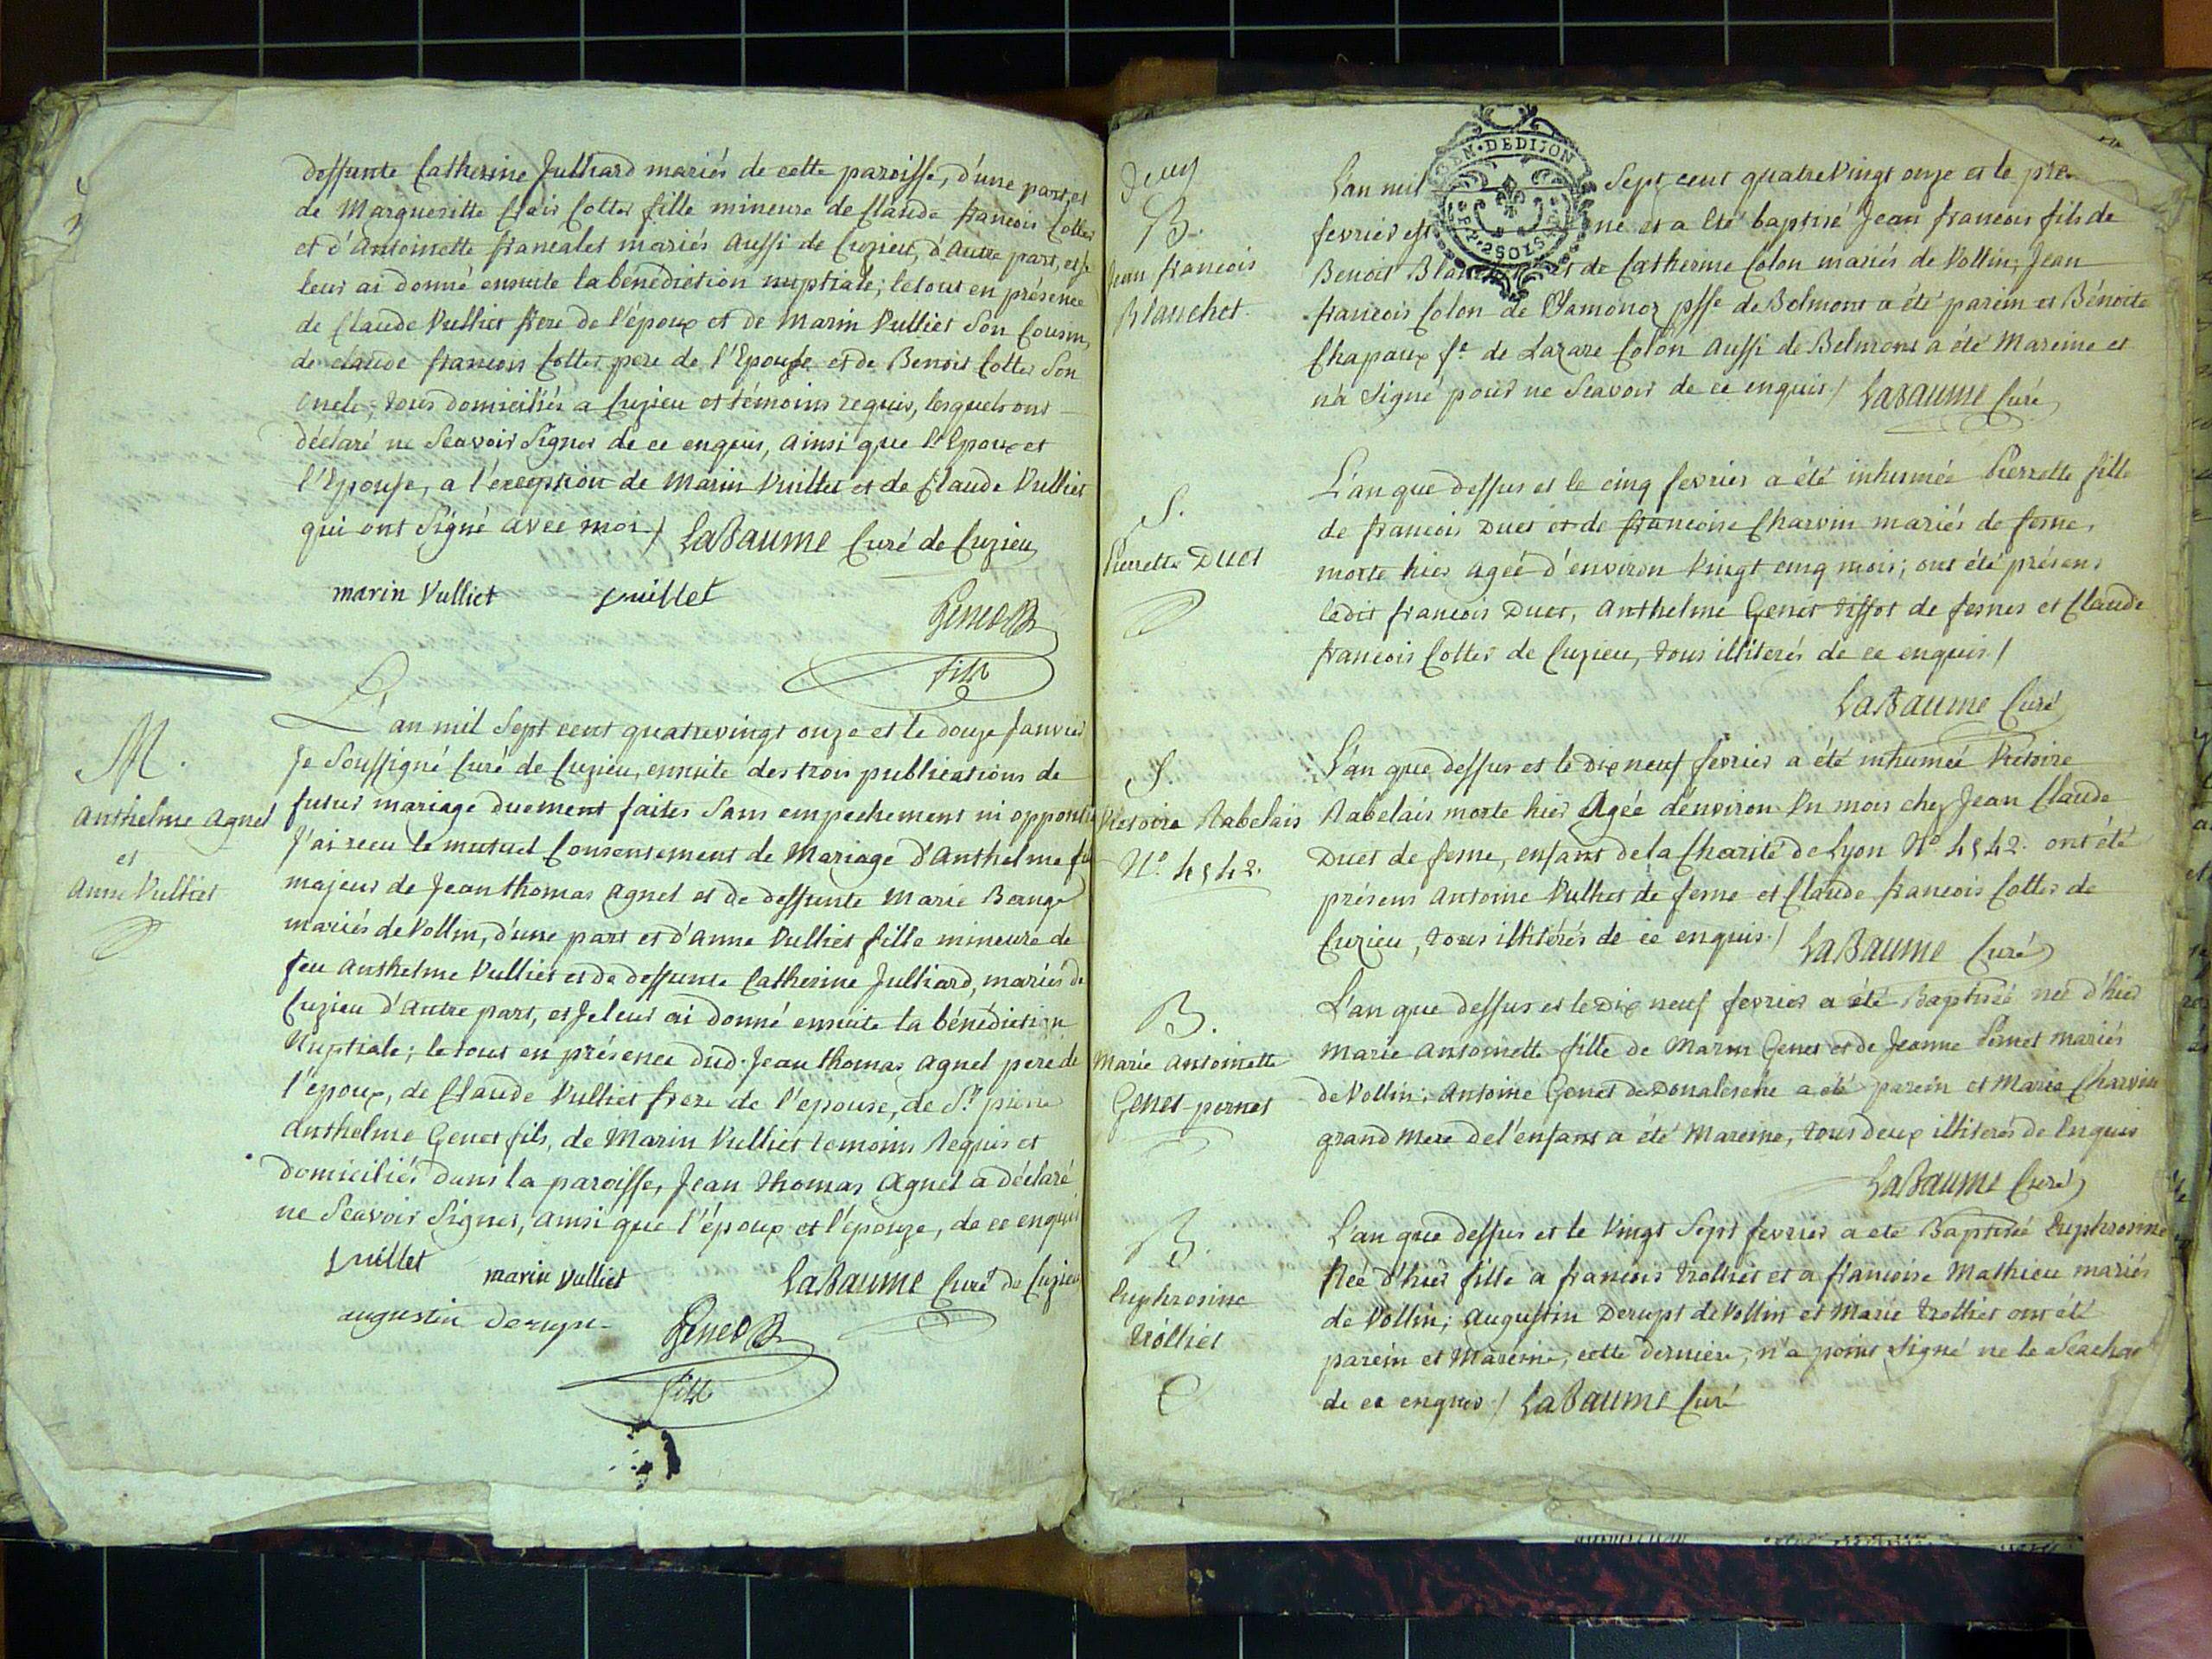 deffunte Catherine Julliard mariés de cette paroisse, d'une part, et
de Margueritte Clair Cottes fille mineure de Claude francois Cottes
et d'Antoinette francalet mariés aussi de Cuzieu, d'Autre part, et je
leur ai donné ensuite la bénédiction nuptiale; le tout en présence
de Claude Vulliet frere de l'époux et de Marin Vulliet son Cousin,
de claude francois Cottes pere de l'Epouse et de Benoit Cottes son
oncle, tous domiciliés a Cuzieu et témoins requis, lesquels ont
déclaré ne Scavoir Signer de ce enquis, ainsi que l'Epoux et
l'Epouse, a l'exception de Marin Vulliet et de Claude Vulliet
qui ont Signé avec moi / LaBaume Curé de Cuzieu
marin Vulliet vuillet
Genet
fils
M.
Anthelme Agnel
et
Anne Vulliet
L'an mil Sept cent quatrevingt onze et le douze Janvier
Je Soussigné Curé de Cuzieu, ensuite des trois publications de
futur mariage duement faites Sans empechement ni opposition
J'ai recu le mutuel Consentement de Mariage d'Anthelme fils
majeur de Jean thomas Agnel et de deffunte Marie Beauge
mariés de Vollin, d'une part et d'Anne Vulliet fille mineure de
feu Anthelme Vulliet et de deffunte Catherine Julliard, mariés de
Cuzieu d'autre part, et Je leur ai donné ensuite la bénédiction
Nuptiale; le tout en présence dud. Jean thomas Agnel pere de
l'époux, de Claude Vulliet frere de l'epouse, de Sr. pierre
Anthelme Genet fils, de Marin Vulliet temoins Requis et
domiciliés dans la paroisse, Jean thomas Agnel a déclaré
ne Scavoir Signer, ainsi que l'époux et l'épouze, de ce enquis
vuillet marin vulliet LaBaume Curé de Cuzieu
augustin Derupt Genet
fils
B.
Jean francois
Blanchet
GEN. DE DIJON
L'an mil Sept cent quatre Vingt onze et le
fevrier est né et a été baptisé Jean francois fils de
Benoit et de Catherine Colon mariés de Vollin; Jean
francois Colon de psse de Belmont a été parein et Bénoite
Chapaux fe de Lazare Colon Aussi de Belmont a été Mareine et
n'a Signé pour ne Scavoir de ce enquis / LaBaume Curé
S.
Pierrette Duet
L'an que dessus et le cinq fevrier a été inhumée Pierrette fille
de francois Duet et de francoise Charvin mariés de ferne,
morte hier agée d'environ Vingt cinq mois; ont été présens
ledit francois Duet, Anthelme Genet tissot de fernes et Claude
francois Cottes de Cuzieu, tous illiterés de ce enquis /
LaBaume Curé
S.
Victoire Rabelais
N° 4542.
L'an que dessus et le Dix neuf fevrier a été inhumée Victoire
Rabelais morte hier Agée d'environ Un mois chez Jean Claude
Duet de ferne, enfant de la Charité de Lyon N° 4542. ont été
présens Antoine Vulliet de ferne et Claude francois Cottes de
Cuzieu, tous illitérés de ce enquis / LaBaume Curé
B.
Marie Antoinette
Genet-pernet
L'an que dessus et le Dix neuf fevrier a été Baptisée née d'hier
Marie Antoinette fille de Marin Genet et de Jeanne Pernet mariés
de Vollin; Antoine Genet de a été parein et Marie Charvin
grand Mere de l'enfant a été Mareine, tous deux illiterés de Enquis
LaBaume Curé
B.
Euphrosine
trolliet
L'an que dessus et le Vingt Sept fevrier a été Baptisée Euphrosine
Née d'hier fille a francois trolliet et a francoise Mathieu mariés
de Vollin; Augustin Derupt de Vollin et Marie trolliet ont été
parein et Mareine, cette derniere, n'a point Signé ne le Scachant
de ce enquis / LaBaume Curé